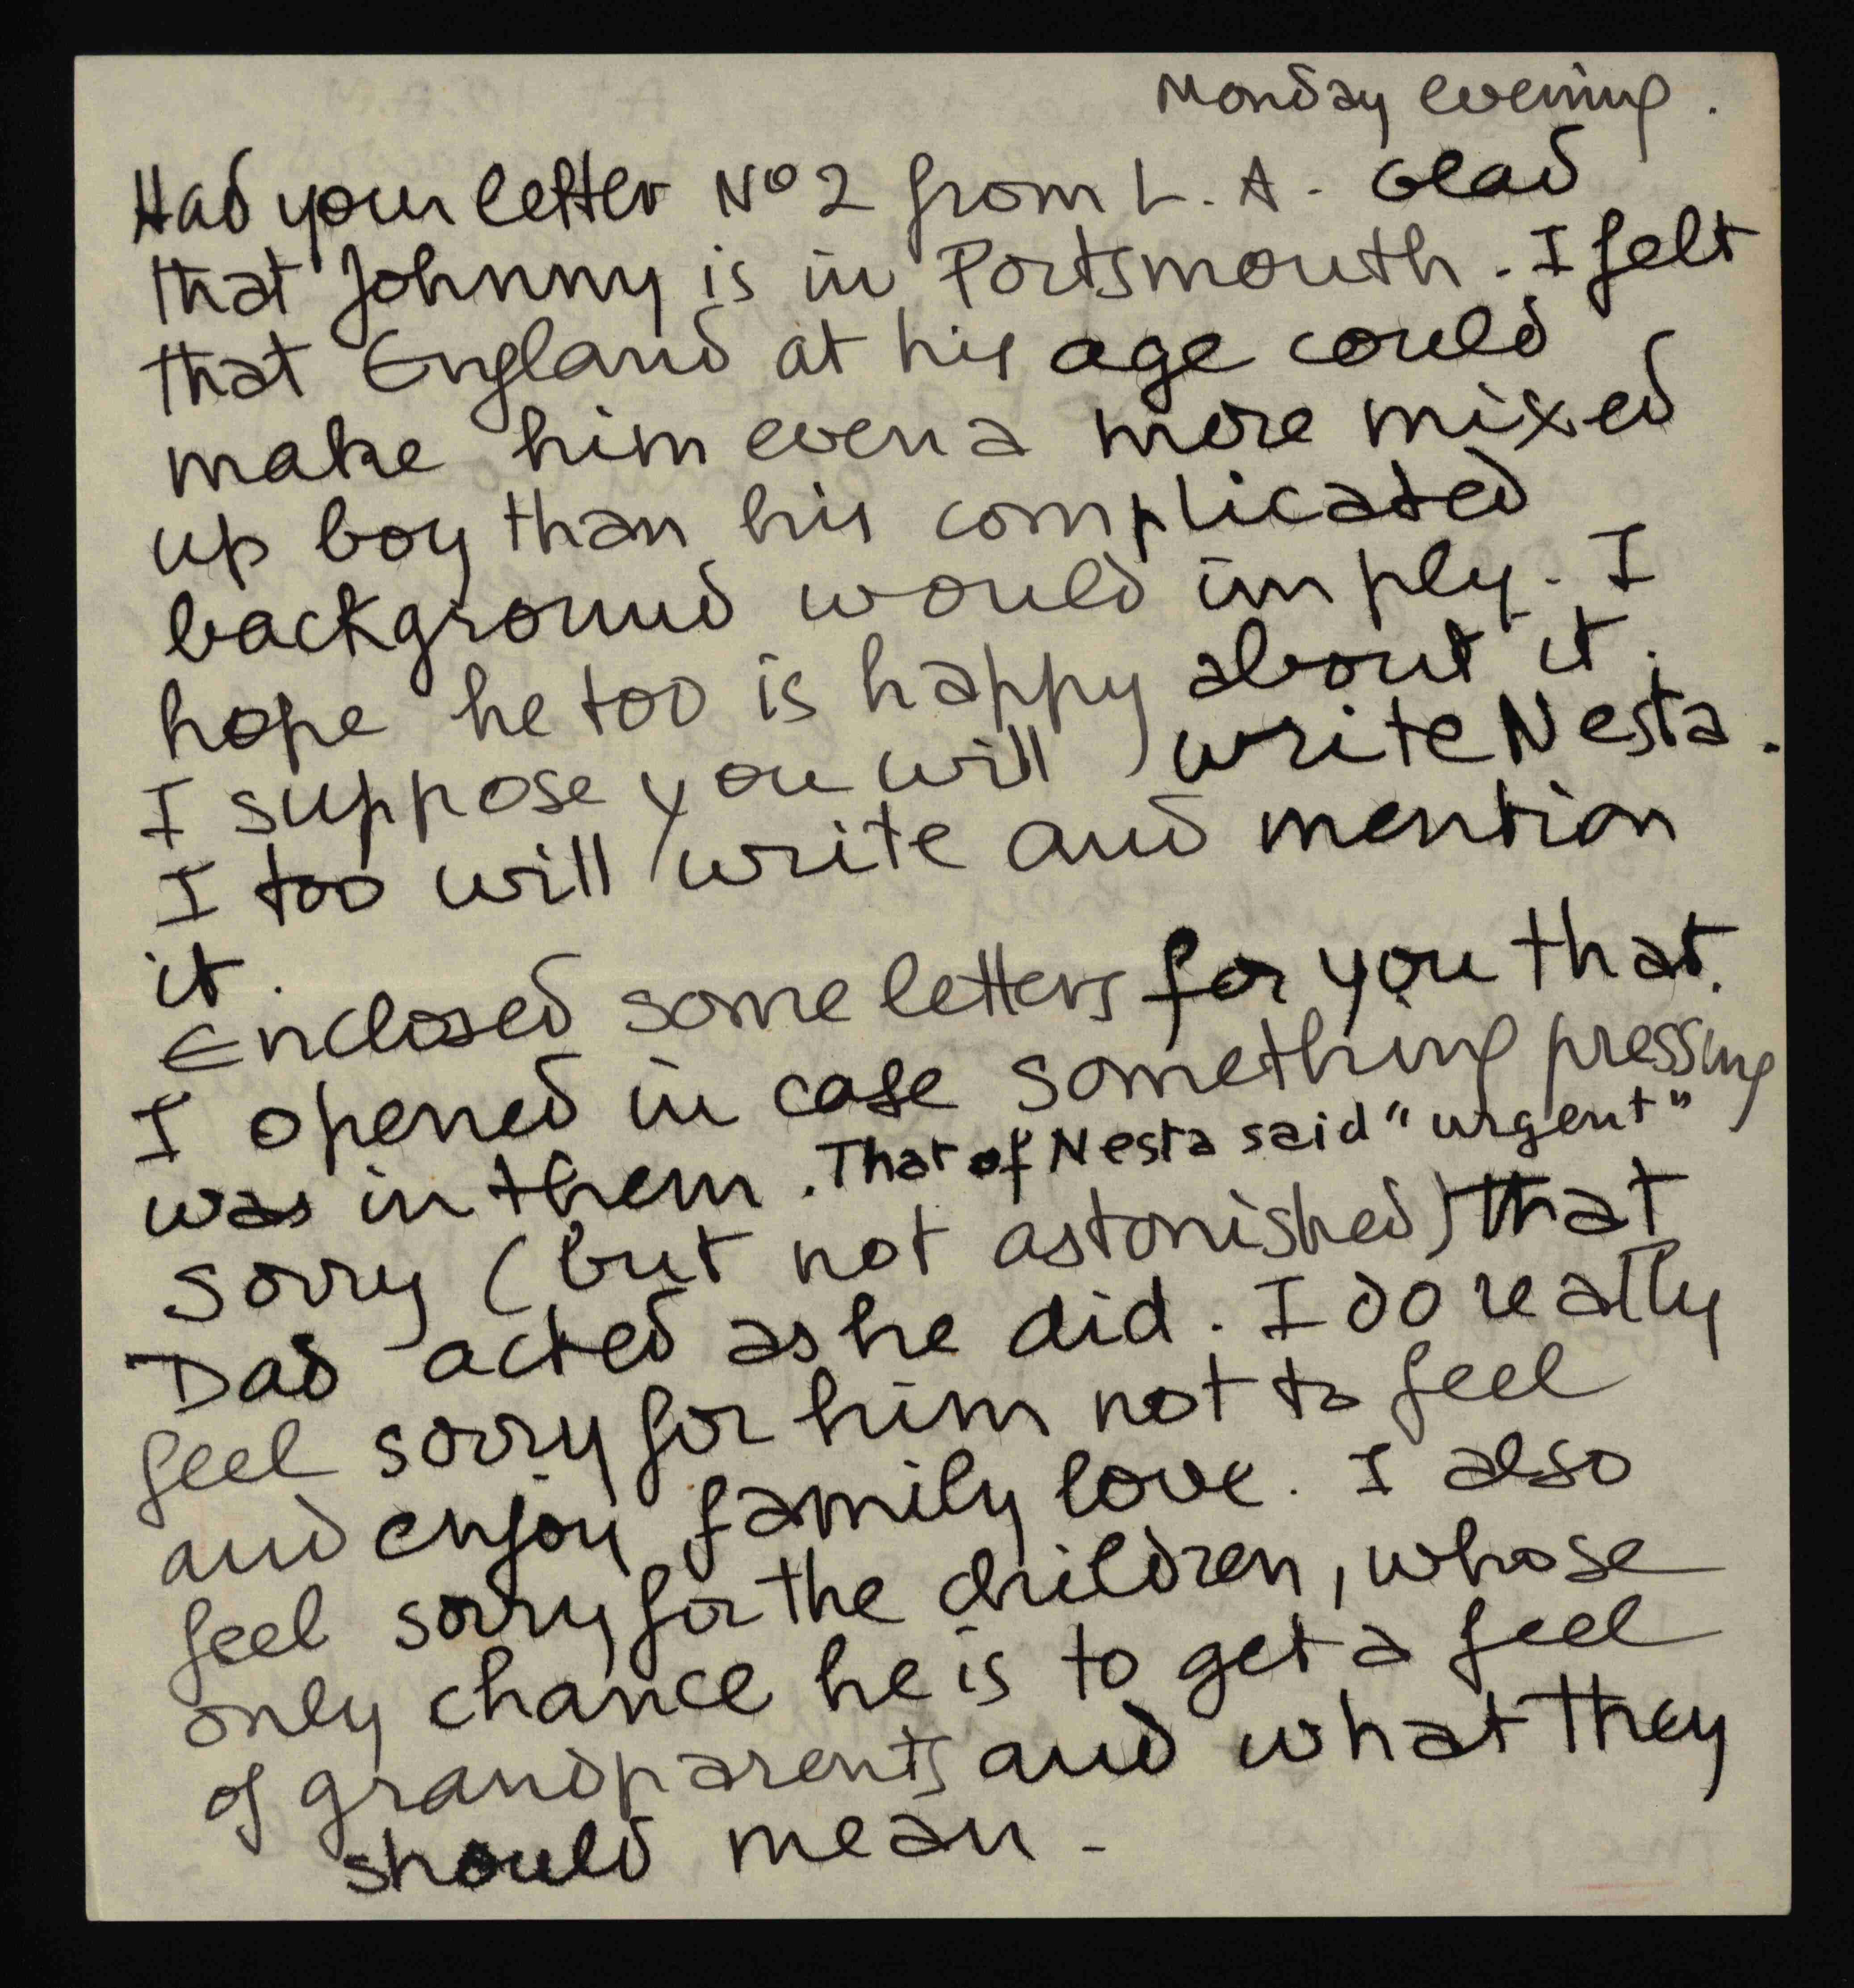 Monday evening.
Had your letter No 2 from L. A. Glad
that Johnny is in Portsmouth. I felt
that England at his age could
make him even a more mixed
up boy than his complicated
background would imply. I
hope he too is happy about it.
I suppose you will write Nesta.
I too will write and mention
it.
Enclosed some letters for you that.
I opened in case something pressing
was in them. That of Nesta said "urgent"
Sorry (but not astonished) that
Dad acted as he did. I do really
feel sorry for him not to feel
and enjoy family love. I also
feel sorry for the children, whose
only chance he is to get a feel
of grandparents and what they
should mean -